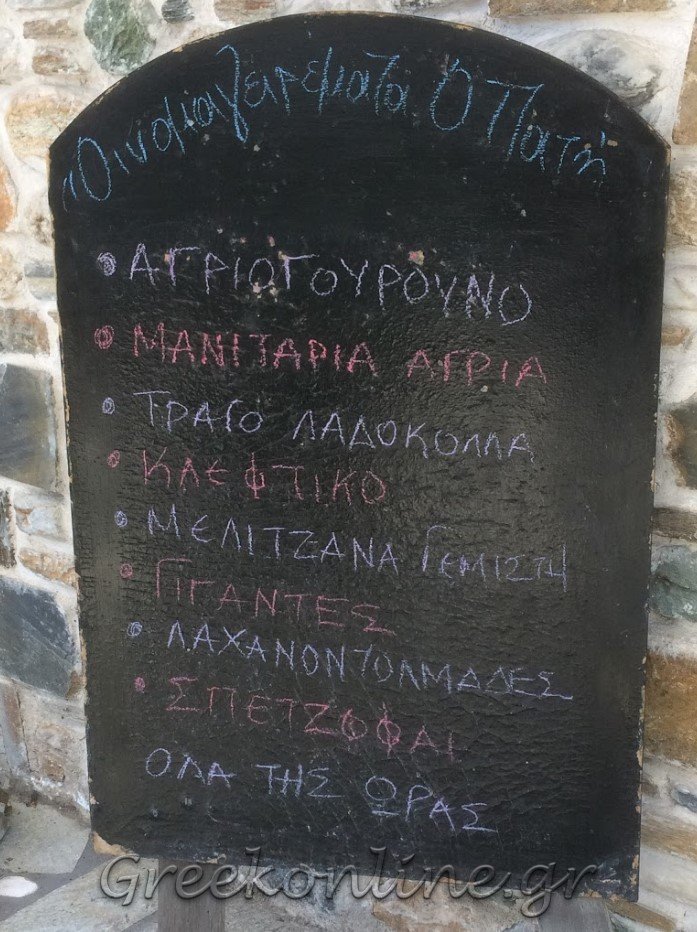 "Οινομαγειρέματα Ό Πατή
• ΑΓΡΙΟΓΟΥΡΟΥΝΟ
• ΜΑΝΙΤΑΡΙΑ ΑΓΡΙΑ
• ΤΡΑΓΟ ΛΑΔΟΚΟΛΛΑ
• ΚΛΕΦΤΙΚΟ
• ΜΕΛΙΤΖΑΝΑ ΓΕΜΙΣΤΗ
• ΓΙΓΑΝΤΕΣ
• ΛΑΧΑΝΟΝΤΟΛΜΑΔΕΣ
• ΣΠΕΤΖΟΦΑΙ
ΟΛΑ ΤΗΣ ΩΡΑΣ
Greekonline.gr